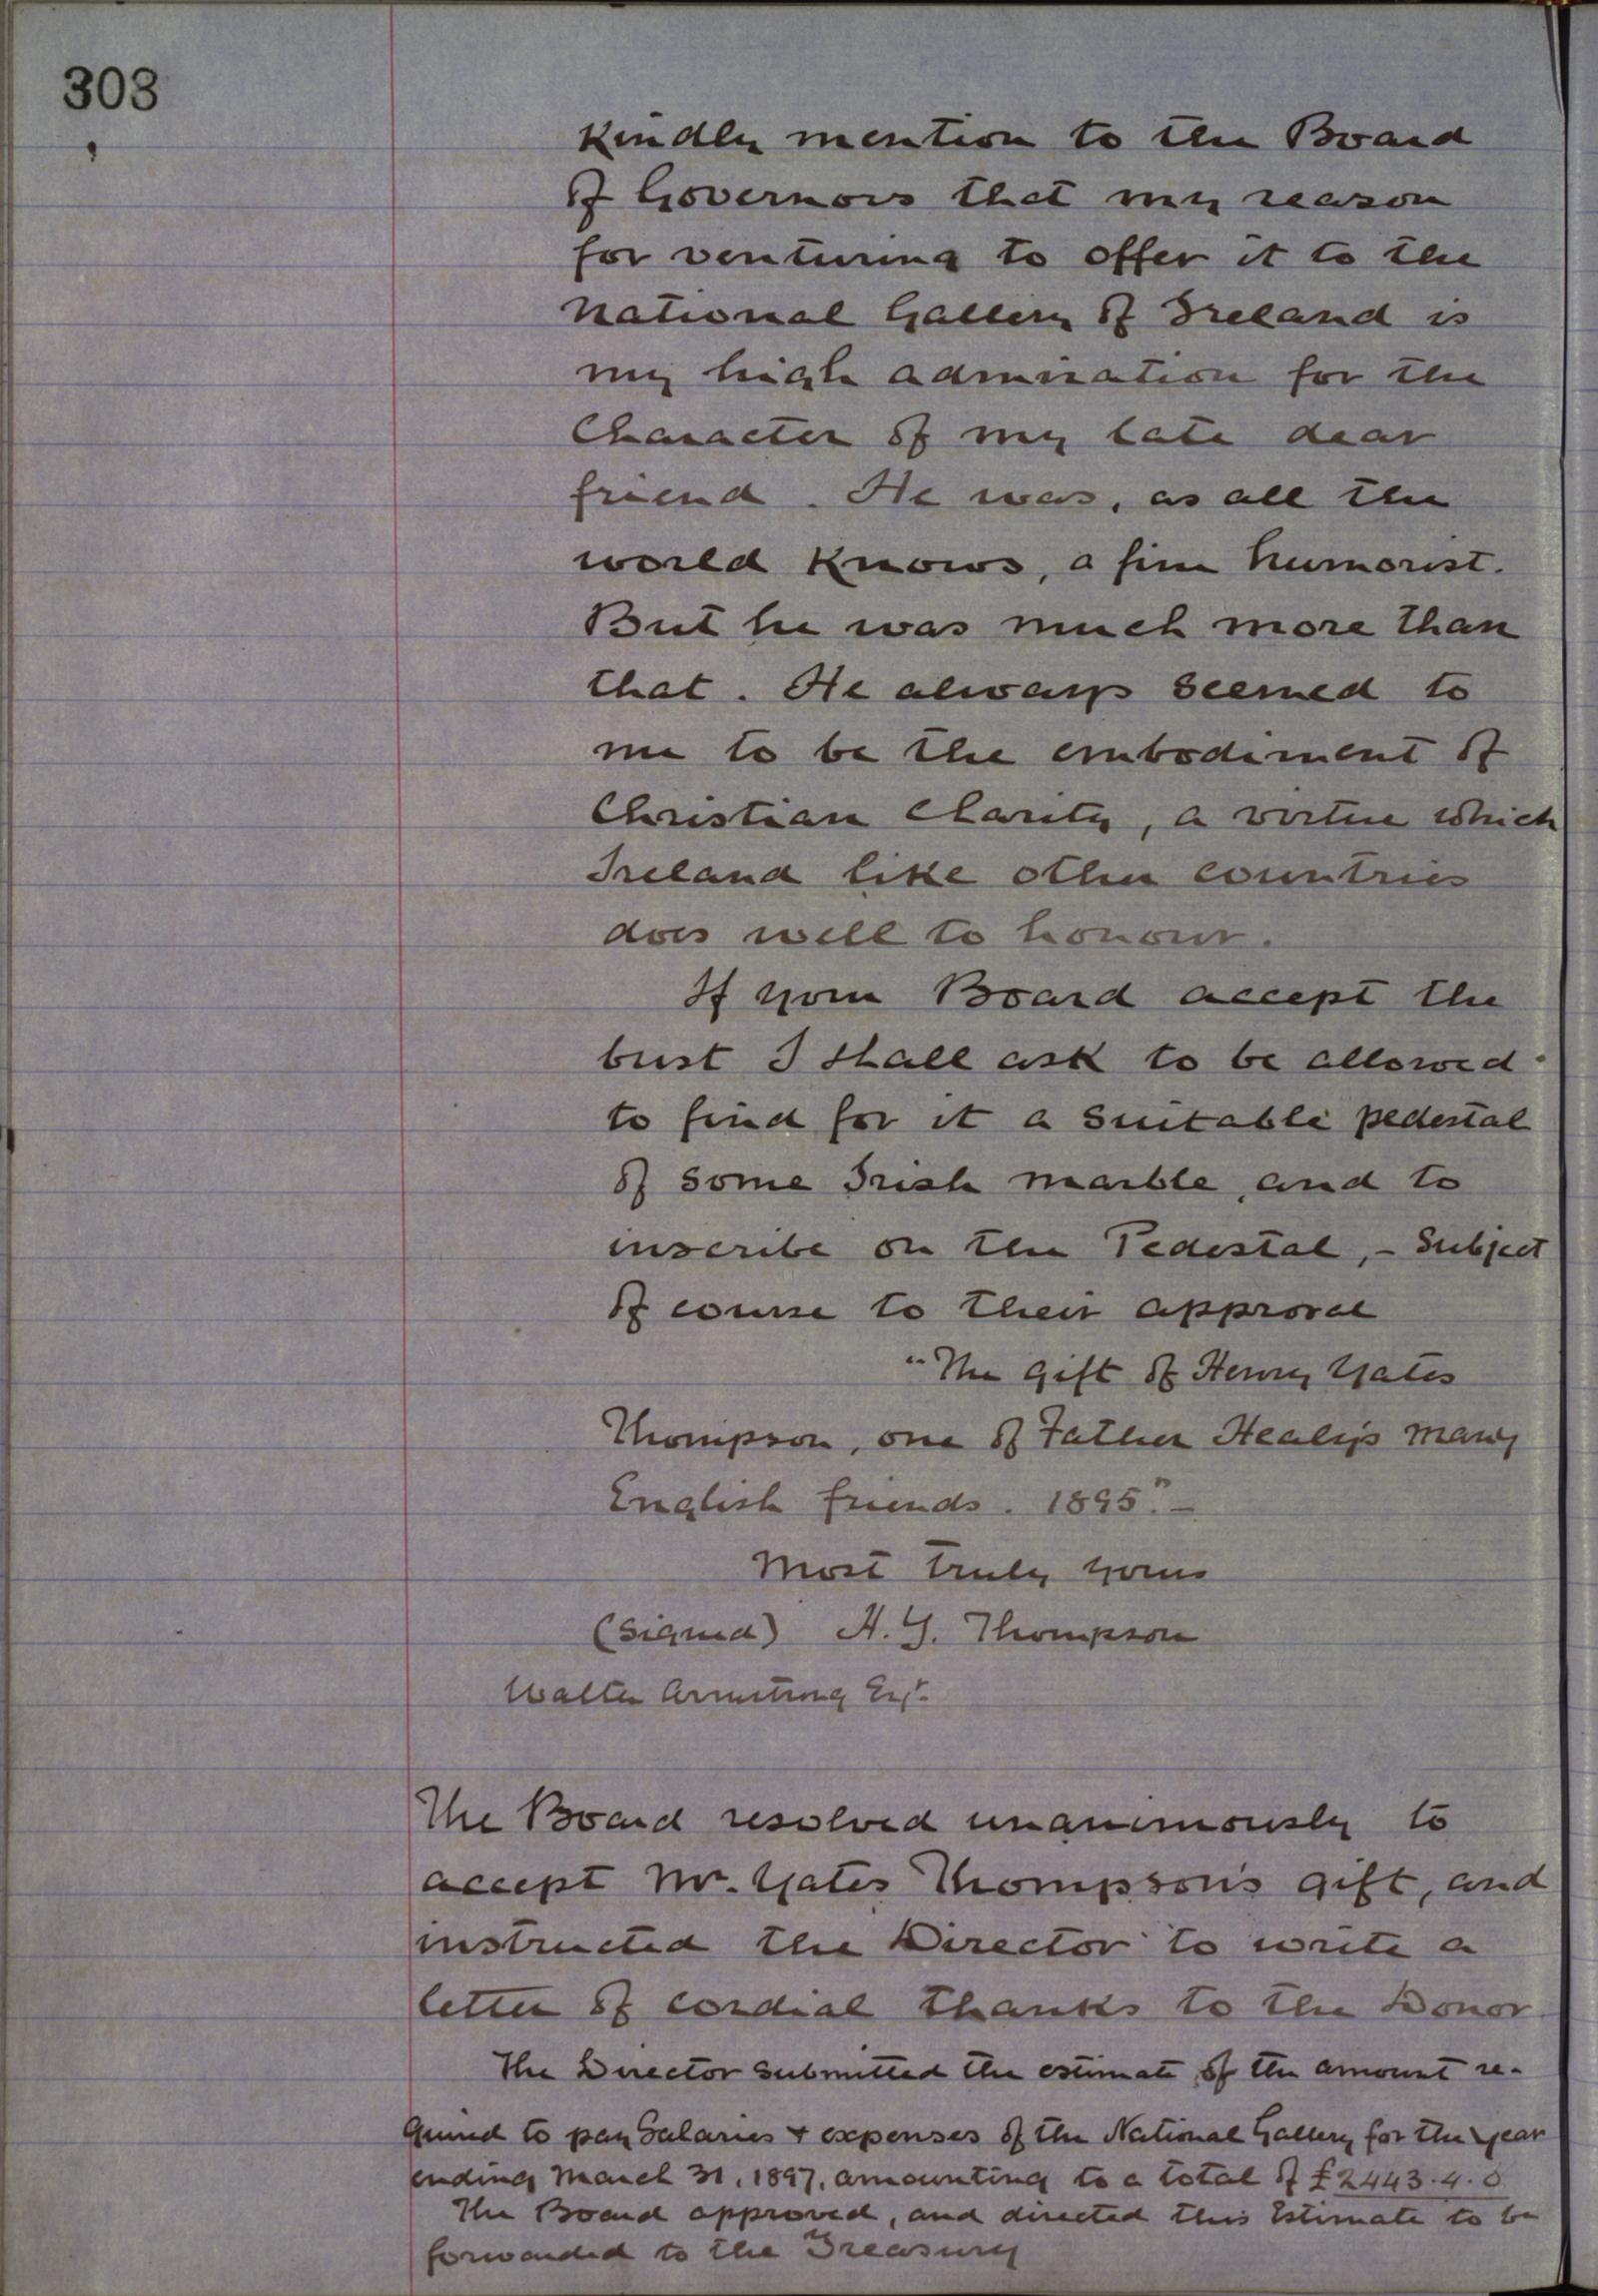 308
Kindly mention to the Board
of Governors that my reason
for venturing to offer it to the
National Gallery of Ireland is
my high admiration for the
Character of my late dear
friend. He was, as all the
world knows, a fine humorist.
But he was much more than
that. He always seemed to
me to be the embodiment of
Christian Charity, a virtue which
Ireland like other countries
does well to honour.
If your Board accept the
bust I shall ask to be allowed
to find for it a suitable pedestal
of some Irish marble, and to
inscribe on the Pedestal, - Subject
of course to their approval
"The gift of Henry Yates
Thompson, one of Father Healy's many
English friends. 1895". -
Most truly yours
(signed) H. Y. Thompson
Walter Armstrong Esqr.
The Board resolved unanimously to
accept Mr. Yates Thompson's gift, and
instructed the Director to write a
letter of cordial thanks to the Donor
The Director submitted the estimate of the amount re-
quired to pay Salaries + expenses of the National Gallery for the year
ending March 31, 1897, amounting to a total of £2443.4.0
The Board approved, and directed this Estimate to be
forwarded to the Treasury